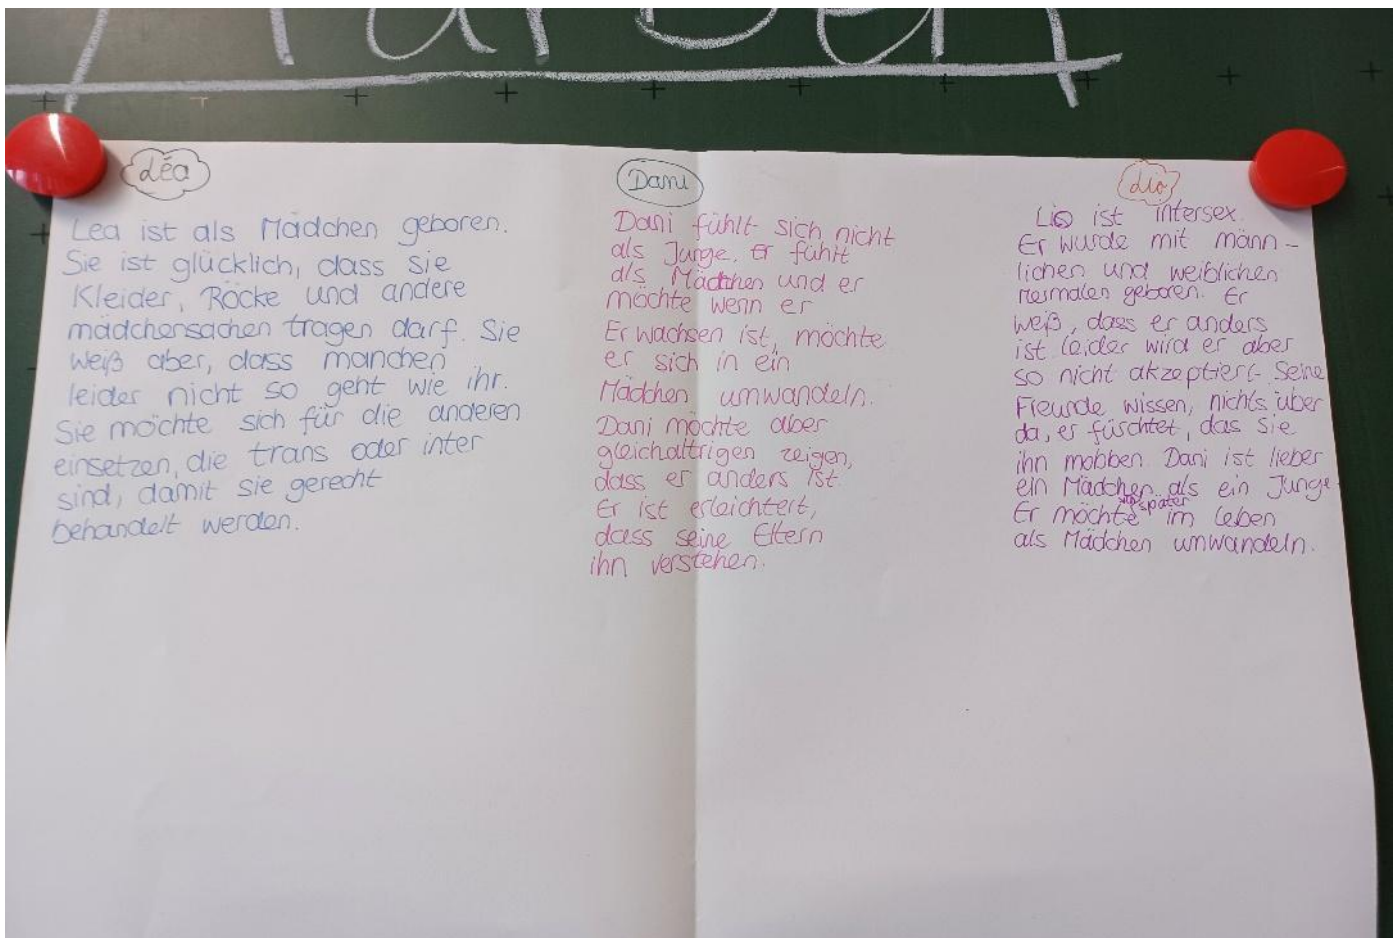 Léa
Lea ist als Mädchen geboren.
Sie ist glücklich, dass sie
Kleider, Röcke und andere
mädchensachen tragen darf. Sie
weiß aber, dass manchen
leider nicht so geht wie ihr.
Sie möchte sich für die anderen
einsetzen, die trans oder inter
sind, damit sie gerecht
behandelt werden.
Dani
Dani fühlt sich nicht
als Junge. Er fühlt
als Mädchen und er
möchte wenn er
Erwachsen ist, möchte
er sich in ein
Mädchen umwandeln.
Dani möchte aber
gleichaltrigen zeigen,
dass er anders ist
Er ist erleichtert,
dass seine Eltern
ihn verstehen.
Lio
Lio ist intersex.
Er wurde mit männ-
lichen und weiblichen
mermalen geboren. Er
weiß, dass er anders
ist leider wird er aber
so nicht akzeptiert. Seine
Freunde wissen, nichts über
da, er fürchtet, das Sie
ihn mobben. Dani ist lieber
ein Mädchen als ein Junge.
Er möchte später im Leben
als Mädchen umwandeln.